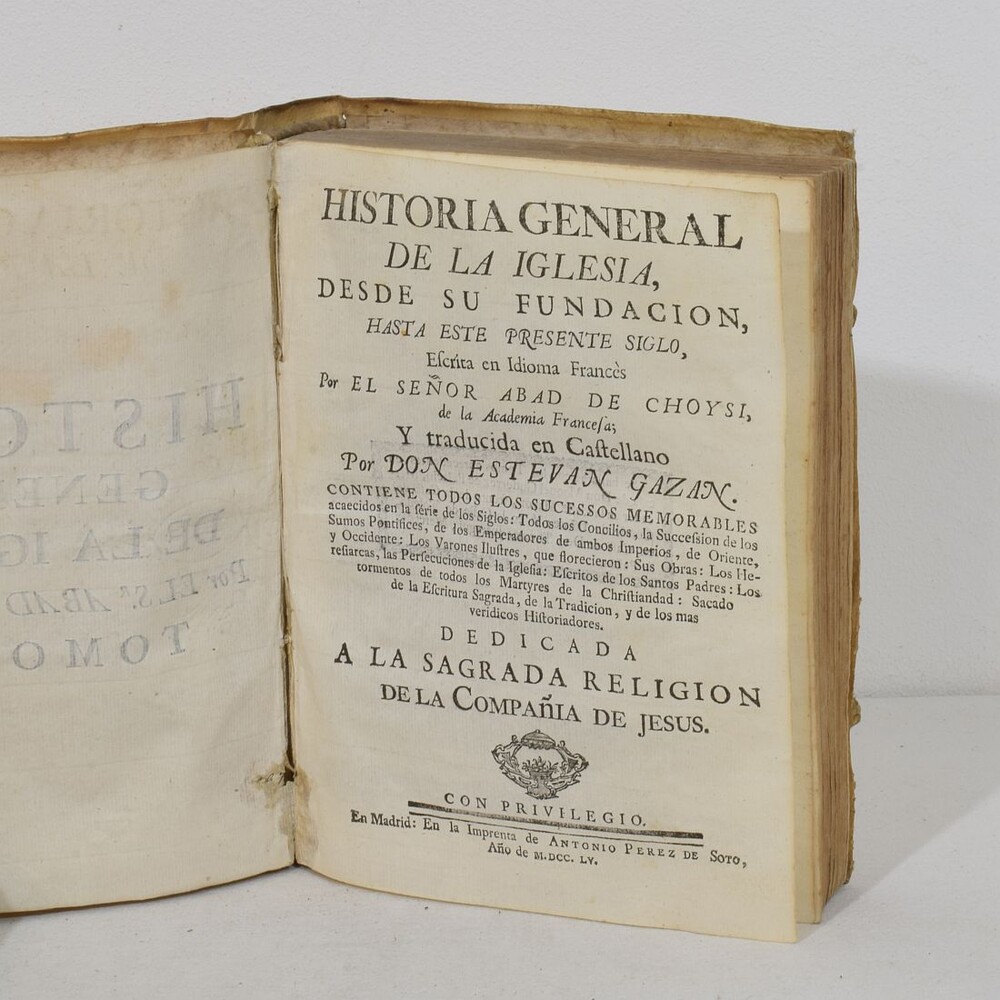 HISTO
GENE
DE LA IG
Por EL Sr. ABAD
TOMO
HISTORIA GENERAL
DE LA IGLESIA,
DESDE SU FUNDACION,
HASTA ESTE PRESENTE SIGLO,
Eſcrita en Idioma Francès
Por EL SEÑOR ABAD DE CHOYSI,
de la Academia Franceſa;
Y traducida en Caſtellano
Por DON ESTEVAN GAZAN.
CONTIENE TODOS LOS SUCESSOS MEMORABLES
acaecidos en la ſérie de los Siglos: Todos los Concilios, la Succeſsion de los
Sumos Pontifices, de los Emperadores de ambos Imperios, de Oriente,
y Occidente: Los Varones Iluſtres, que florecieron: Sus Obras: Los He-
reſiarcas, las Perſecuciones de la Igleſia: Eſcritos de los Santos Padres: Los
tormentos de todos los Martyres de la Chriſtiandad: Sacado
de la Eſcritura Sagrada, de la Tradicion, y de los mas
veridicos Hiſtoriadores.
DEDICADA
A LA SAGRADA RELIGION
DE LA COMPAÑIA DE JESUS.
CON PRIVILEGIO.
En Madrid: En la Imprenta de ANTONIO PEREZ DE SOTO,
Año de M.DCC. LV.